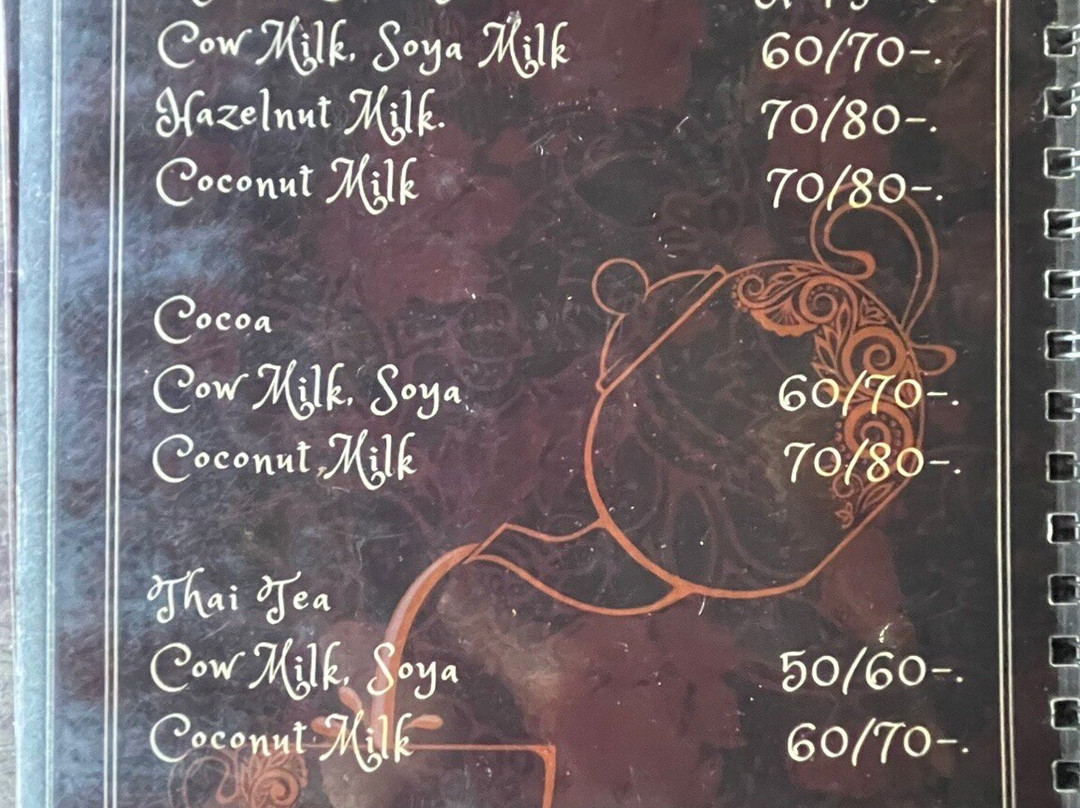 Cow Milk, Soya Milk 60/70-.
Hazelnut Milk. 70/80-.
Coconut Milk 70/80-.
Cocoa
Cow Milk, Soya 60/70-.
Coconut Milk 70/80-.
Thai Tea
Cow Milk, Soya 50/60-.
Coconut Milk 60/70-.